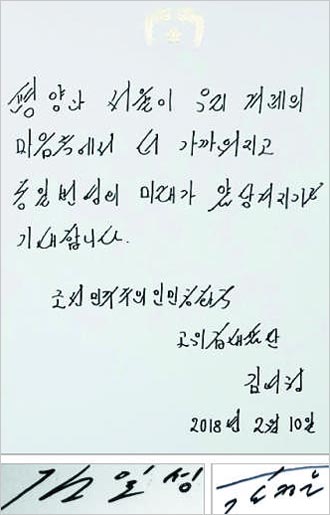 평양과 서울이 우리 겨레의
마음속에서 더 가까워지고
통일번영의 미래가 앞당겨지기를
기대합니다.
조선민주주의인민공화국
고위급대표단
김여정
2018년 2월 10일
김일성
김정은